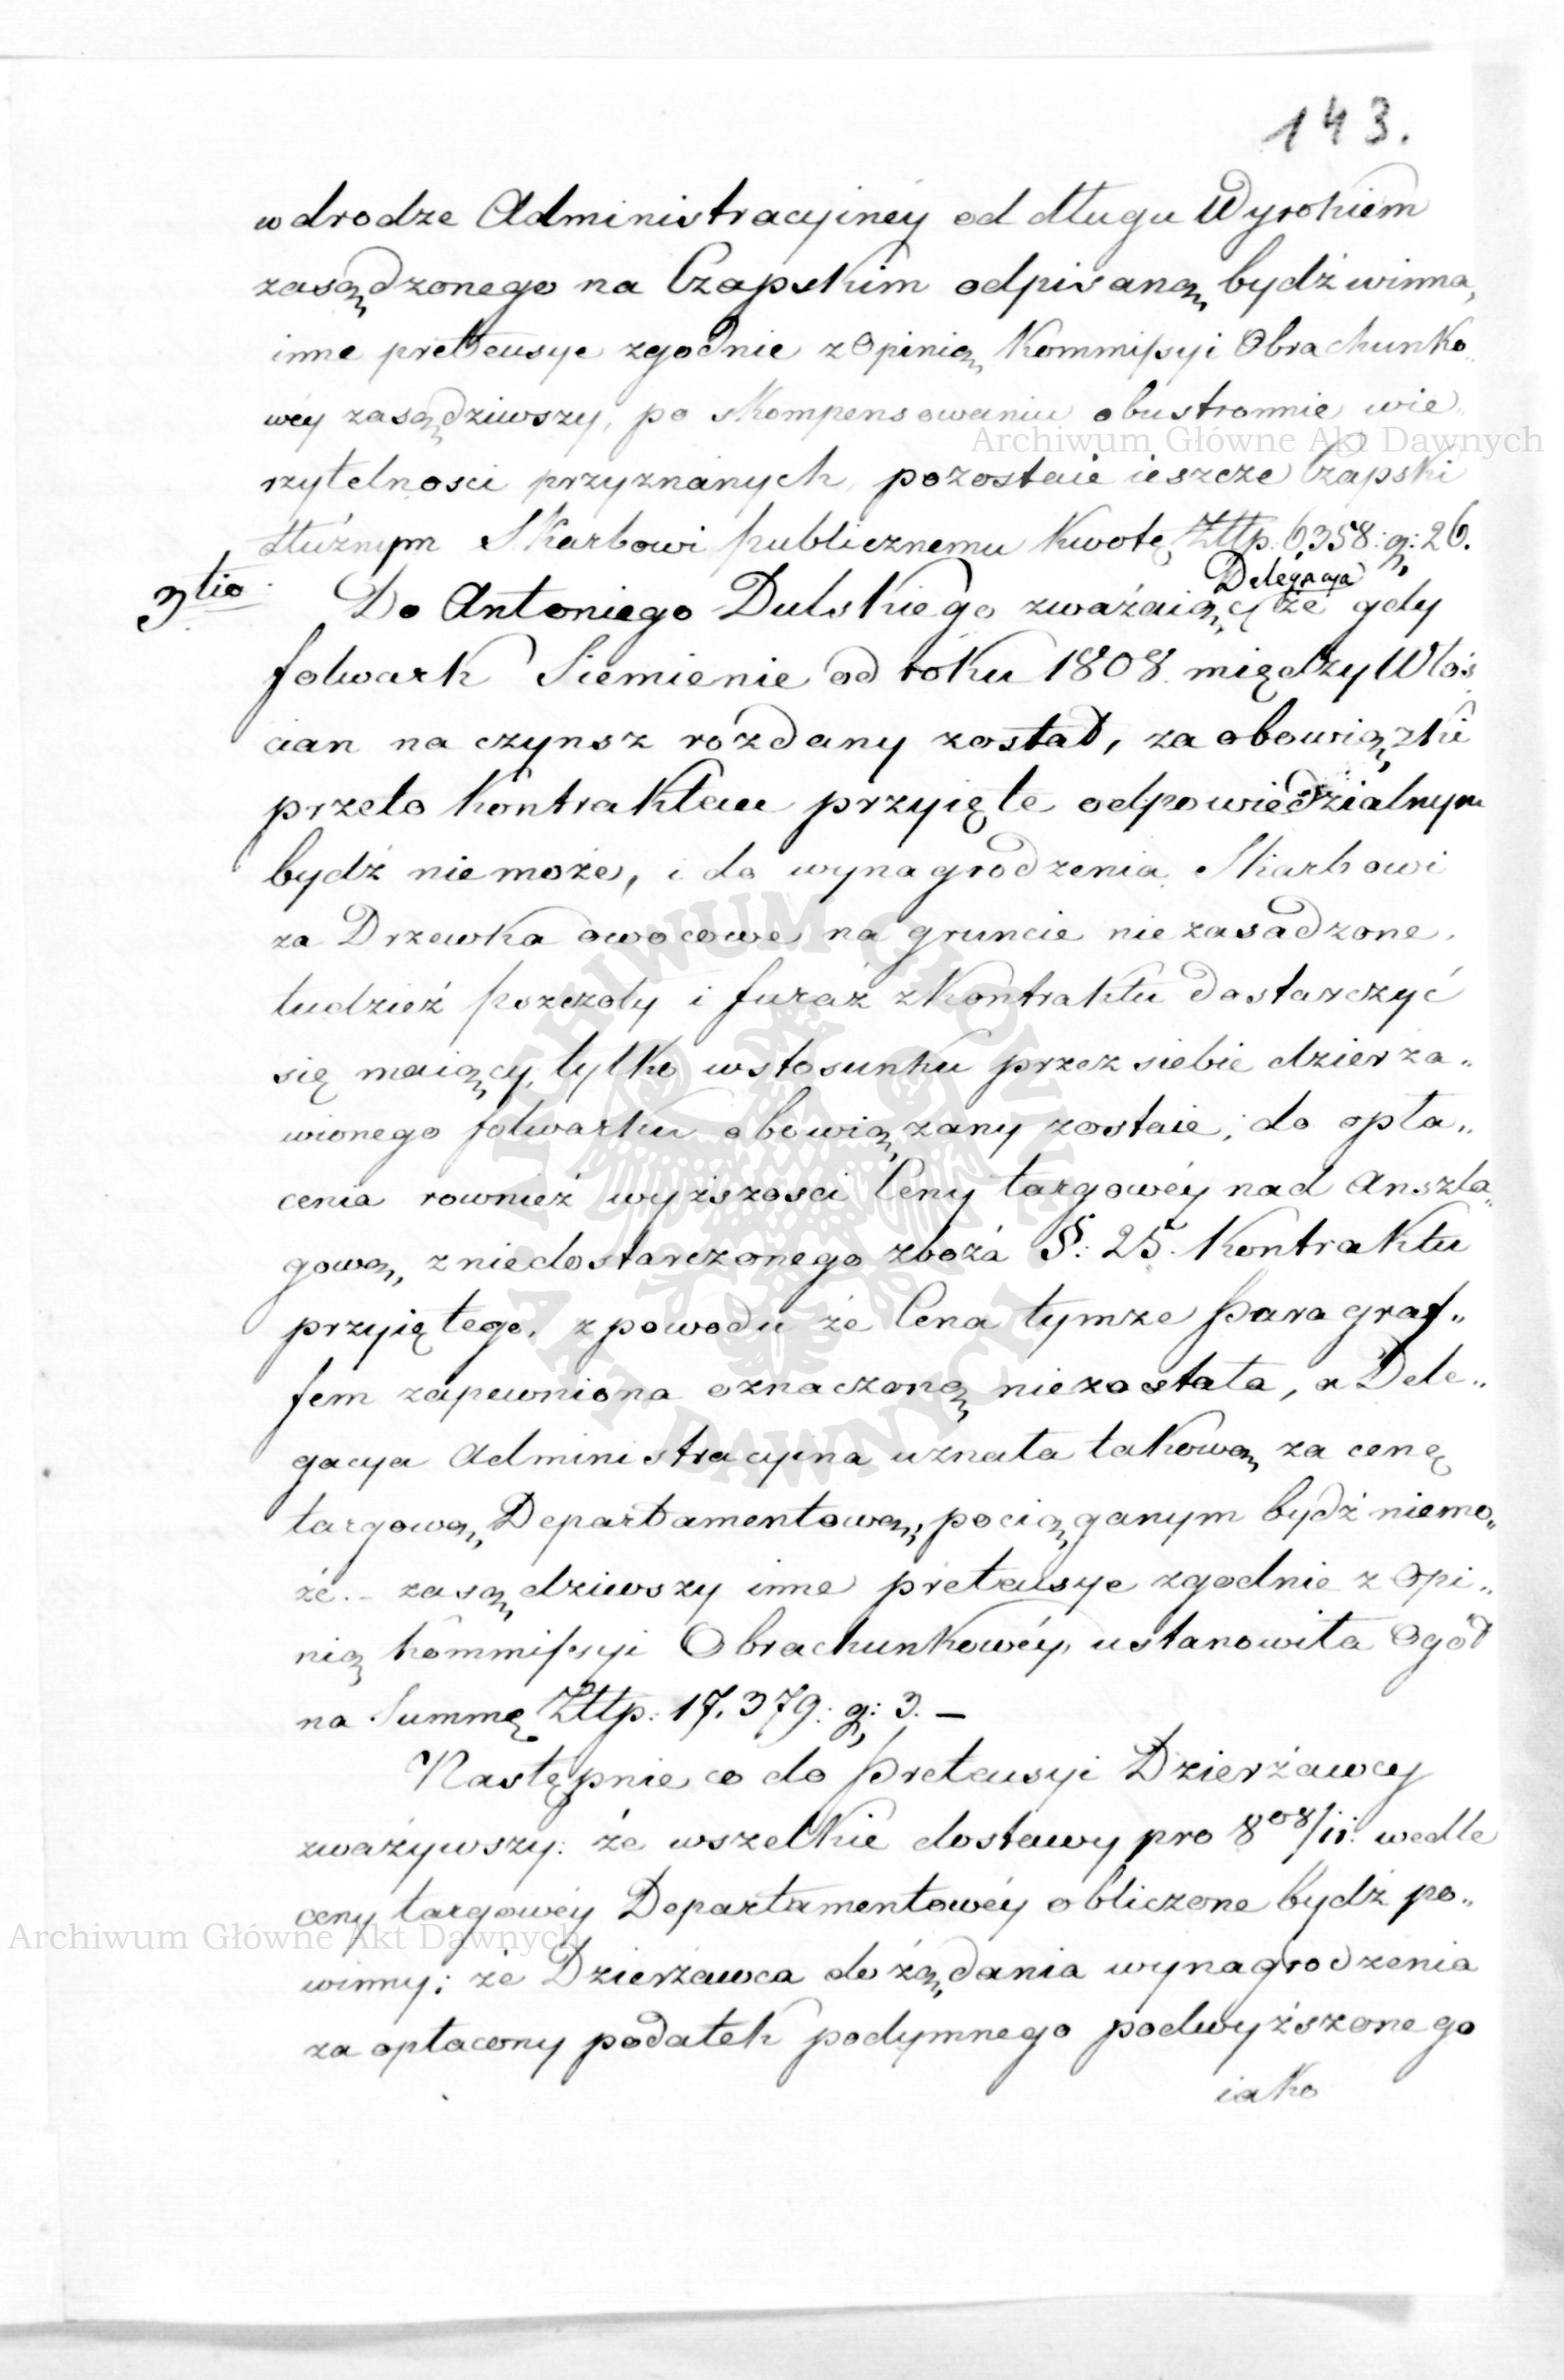 143.
w drodze Administracyiney od długu Wyrokiem
zasądzonego na Czapskim odpisaną bydź winna,
inne pretensye zgodnie z Opinią Kommissyi Obrachunko„
wéy zasądziwszy, po skompensowaniu obustronnie wie„
rzytelnosci przyznanych, pozostaie ieszcze Czapski
dłużnym Skarbowi publicznemu kwotę Złtp. 6,358: g: 26.
3tio Do Antoniego Dulskiego zważaiąc Delegacya że gdy
folwark Siemienie od roku 1808. między Włoś
cian na czynsz rozdany został, za obowiązki
przeto kontraktem przyięte odpowiedzialnym
bydź nie może, i do wynagrodzenia Skarbowi
za Drzewka owocowe na gruncie nie zasadzone,
tudzież pszczoły i furaż z kontraktu dostarczyć
się maiący, tylko w stosunku przez siebie dzierża„
wionego folwarku obowiązany zostaie; do opła„
cenia rownież wyższosci Ceny targowéy nad Anszla„
gową, z niedostarczonego zboża §: 25. Kontraktu
przyiętego, z powodu że Cena tymże paragraf„
fem zapewniona oznaczoną nie została, a Dele„
gacya Administracyina uznała takową za cenę
targową Departamentową, pociąganym bydź niemo„
że. – zasądziwszy inne pretensye zgodnie z Opi„
nią Kommissyi Obrachunkowéy, ustanowiła Ogół
na Summę Złtp: 17.379: g: 3. –
Następnie co do pretensyi Dzierżawcy
zważywszy: że wszelkie dostawy pro 808/11: wedle
ceny targowéy Departamentowéy obliczone bydź po„
winny; że Dzierżawca do żądania wynagrodzenia
za opłacony podatek podymnego podwyższonego
iako
Archiwum Główne Akt Dawnych
Archiwum Główne Akt Dawnych
ARCHIWUM GŁÓWNE AKT DAWNYCH